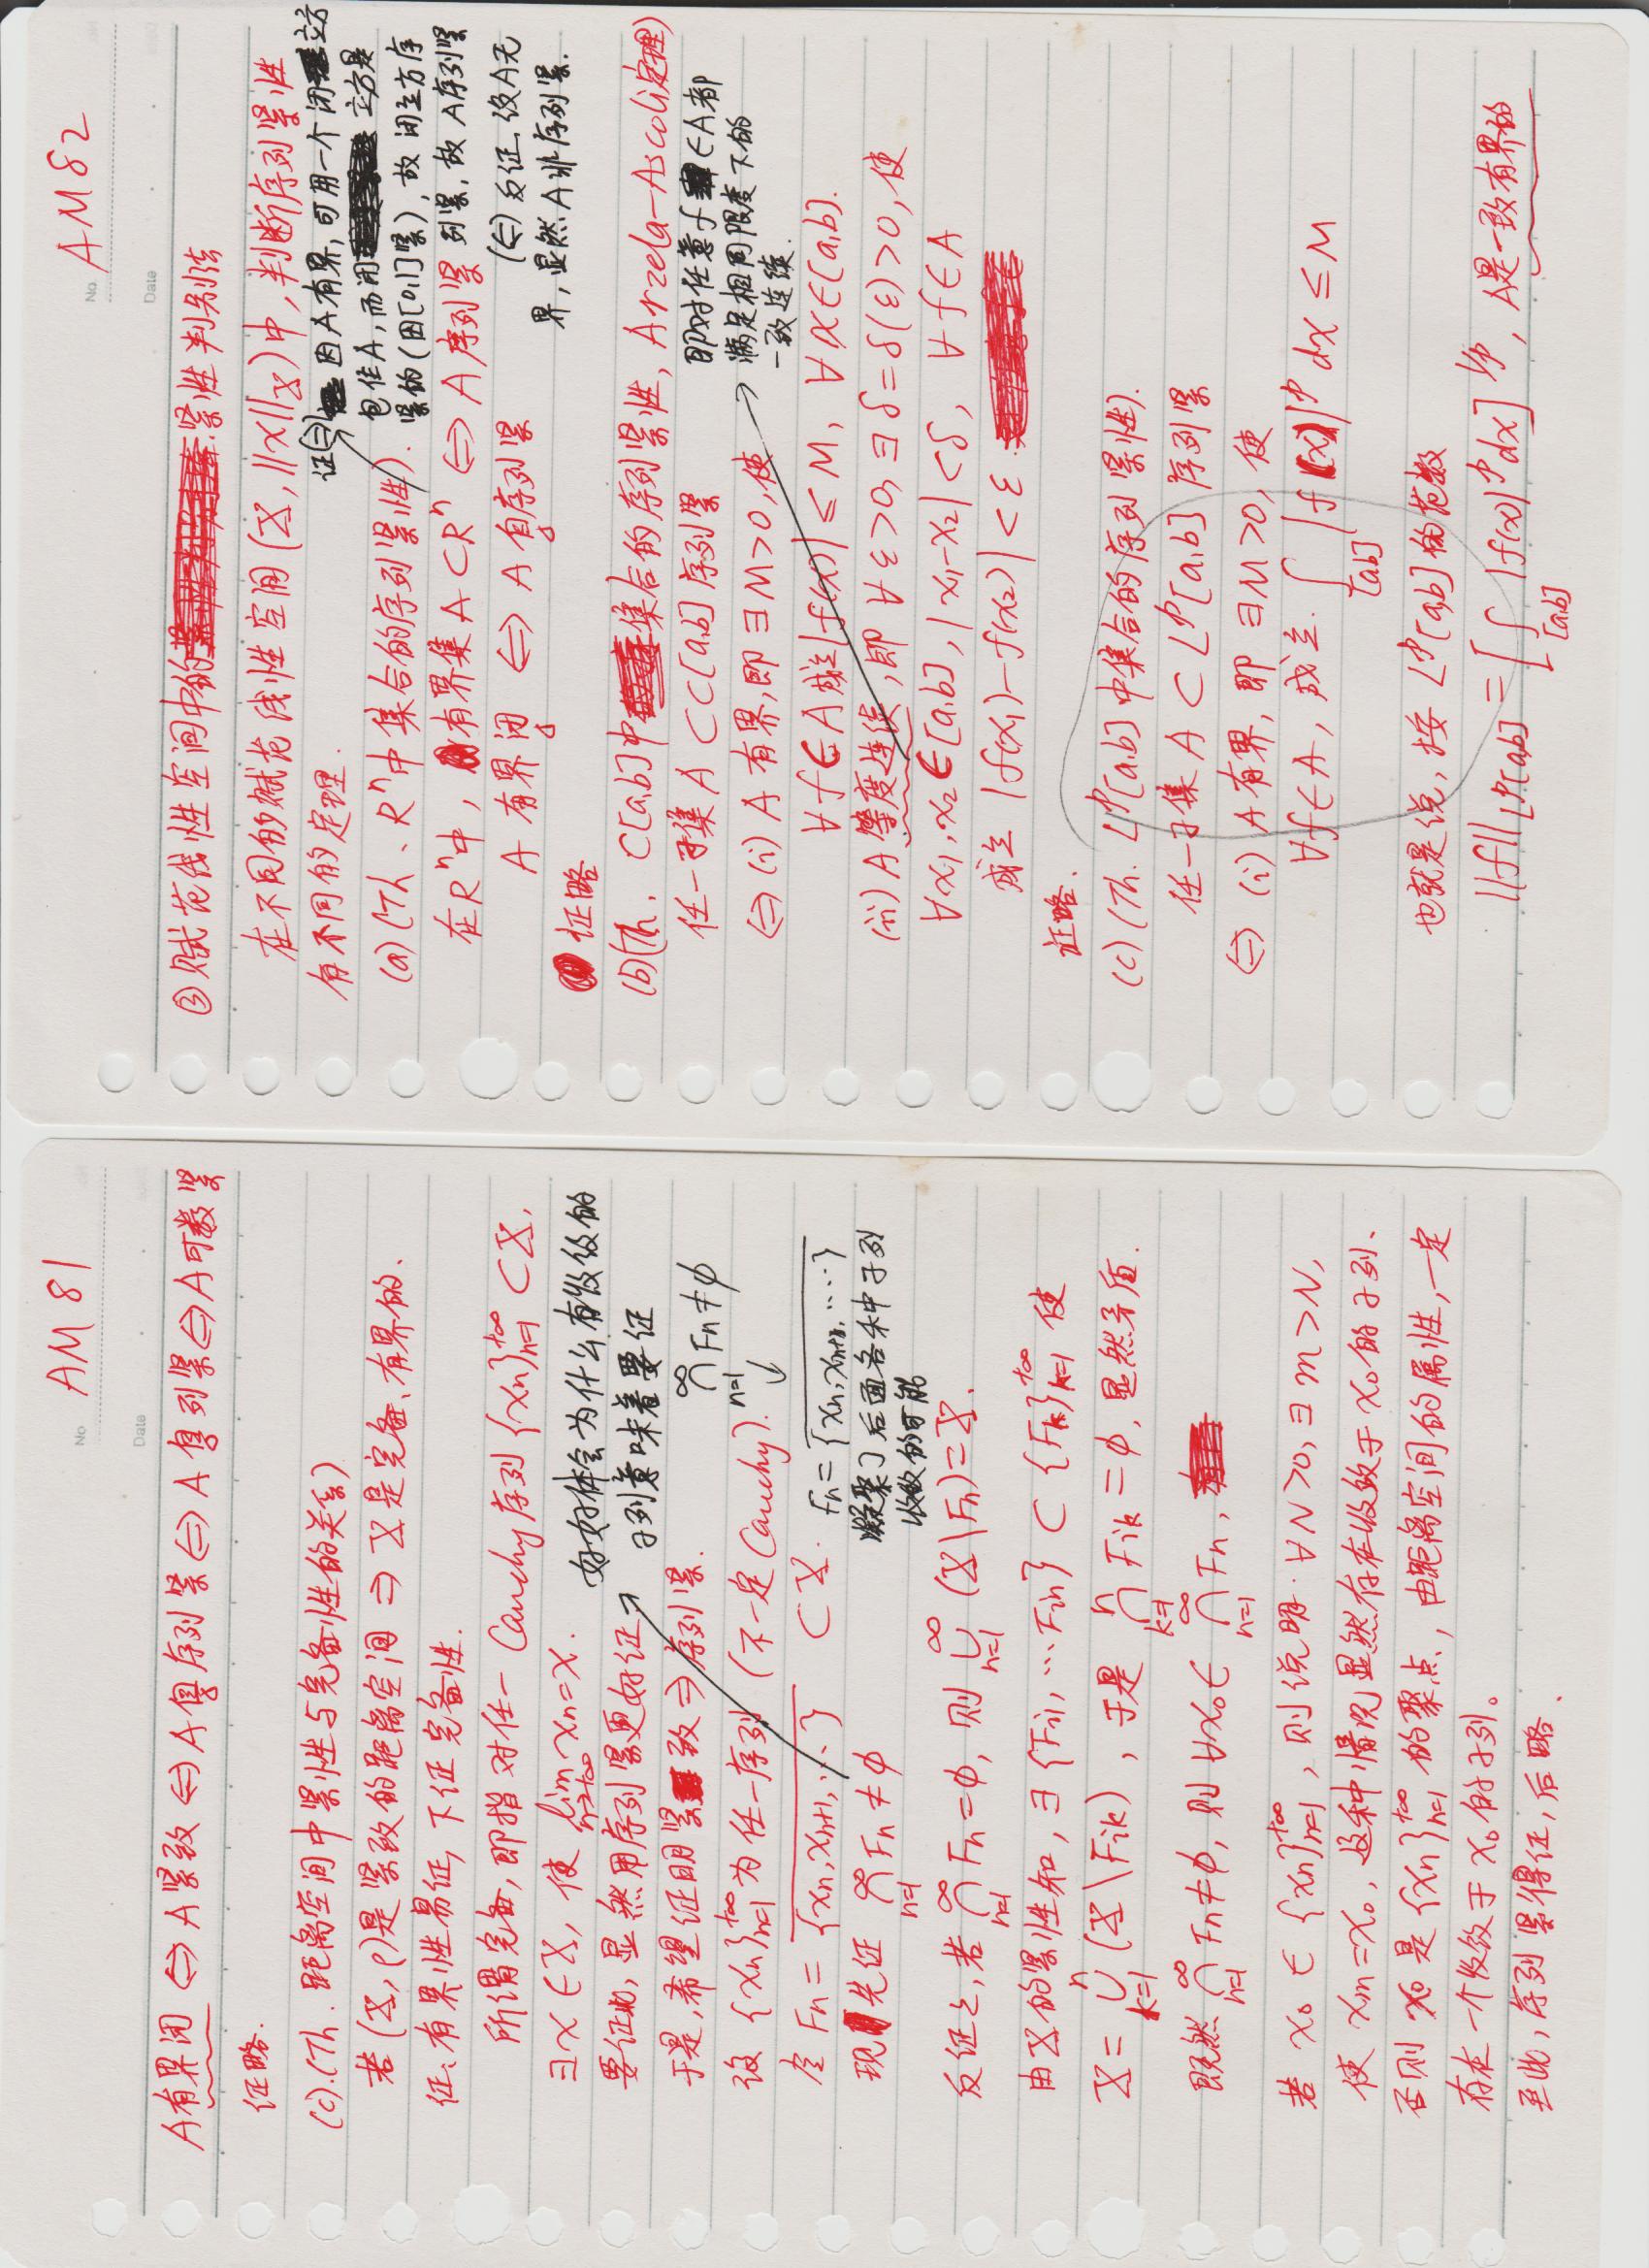 No. AM 81
Date
A有界闭 ⇔ A紧致 ⇔ A自序列紧 ⇔ A自列紧 ⇔ A可数紧
证略.
(c).(Th. 距离空间中紧性与完备性的关系)
若(X, ρ)是紧致的距离空间 ⇒ X是完备、有界的.
证: 有界性易证, 下证完备性.
所谓完备, 即指对任一 Cauchy序列 {xn}_{n=1}^{+∞} ⊂ X,
∃x∈X, 使 lim_{n→+∞} xn=x.
要证此, 显然用序列紧更好证
于是, 希望证明紧致⇒序列紧.
设 {xn}_{n=1}^{+∞} 为任一序列 (不一定Cauchy).
令 Fn = \overline{{xn, xn+1, ...}} ⊂ X.
现先证 ∩_{n=1}^{∞} Fn ≠ ϕ
好好体会为什么有收敛的
子列意味着要证
∩_{n=1}^{∞} Fn ≠ ϕ
↓
Fn = \overline{{xn, xn+1, ....}}
凝聚了后面各种子列
收敛的可能
反证之, 若 ∩_{n=1}^{∞} Fn = ϕ, 则 ∪_{n=1}^{∞} (X\Fn)=X.
由X的紧性知, ∃ {Fi1, ...Fin} ⊂ {Fk}_{k=1}^{+∞} 使
X = ∪_{k=1}^{n} (X\Fik), 于是 ∩_{k=1}^{n} Fik = ϕ, 显然矛盾.
既然 ∩_{n=1}^{∞} Fn ≠ ϕ, 则 ∀x0∈ ∩_{n=1}^{∞} Fn,
若 x0 ∈ {xn}_{n=1}^{+∞}, 则说明 ∀N>0, ∃ m>N,
使 xm=x0, 这种情况显然存在收敛于 x0 的子列.
否则 x0 是 {xn}_{n=1}^{+∞} 的聚点, 由距离空间的属性, 一定
存在一个收敛于 x0 的子列。
至此, 序列紧得证, 后略.
No. AM82
Date
③ 赋范线性空间中的紧性判别法
在不同的赋范线性空间 (X, ||x||_X) 中, 判断序列紧性
有不同的定理.
(a) (Th、R^n中集合的序列紧性).
在R^n中, 有界集 A⊂R^n ⇔ A 序列紧
A 有界闭 ⇔ A 自序列紧
证略
证(⇒) 因A有界, 可用一个闭立方
包住A, 而闭立方是
紧的 (因[0,1]紧), 故闭立方序
列紧, 故 A序列紧
(⇐) 反证, 设A无
界, 显然A非序列紧.
(b)(Th. C[a,b]中集合的序列紧性, Arzela-Ascoli定理)
任一子集 A⊂C[a,b] 序列紧
⇔ (i) A 有界, 即 ∃M>0, 使
∀f∈A成立|f(x)| ≤ M, ∀x∈[a,b].
(ii) A 等度连续, 即 ∀ε>0, ∃δ=δ(ε)>0, 使
∀x1, x2∈[a,b], |x1-x2|<δ, ∀f∈A
成立 |f(x1)-f(x2)| < ε
即对任意f∈A都
满足相同限度下的
一致连续.
证略.
(c) (Th. L^p[a,b] 中集合的序列紧性).
任一子集 A ⊂ L^p[a,b] 序列紧
⇔ (i) A有界, 即 ∃M>0, 使
∀f∈A, 成立. ∫_{[ab]} |f(x)|^p dx ≤ M
也就是说, 按 L^p[a,b] 的范数
||f||_{L^p[a,b]} = [∫_{[a,b]} |f(x)|^p dx]^{1/p}, A是一致有界的